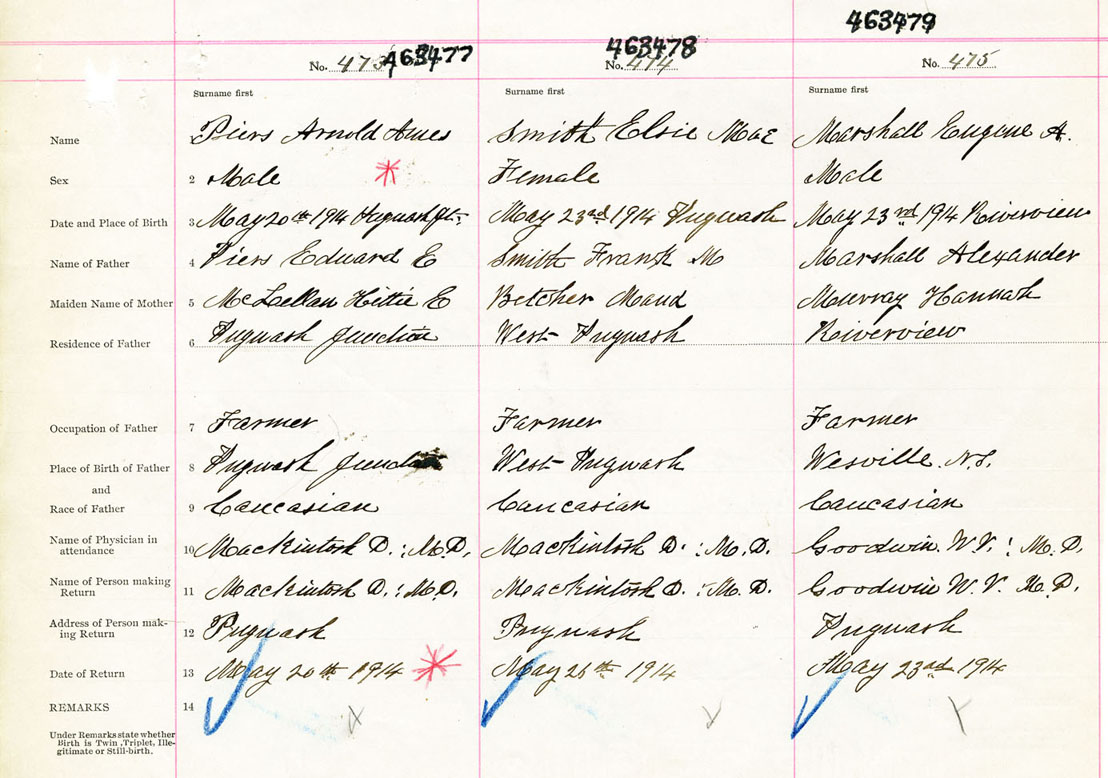 463479
463477 463478
No. 473 No. 474 No. 475
Surname first Surname first Surname first
Name Piers Arnold Ames Smith Elsie Mae Marshall Eugene A.
Sex 2 Male Female Male
Date and Place of Birth 3 May 20th 1914 Pugwash Jct. May 23rd 1914 Pugwash May 23rd 1914 Riverview
Name of Father 4 Piers Edward E Smith Frank M Marshall Alexander
Maiden Name of Mother 5 McLellan Hettie E Betcher Maud Murray Hannah
Residence of Father 6 Pugwash Junction West Pugwash Riverview
Occupation of Father 7 Farmer Farmer Farmer
Place of Birth of Father 8 Pugwash West Pugwash Wesville N.S.
and
Race of Father 9 Caucasian Caucasian Caucasian
Name of Physician in
attendance 10 Mackintosh D. : M.D. Mackintosh D. : M.D. Goodwin W.V. : M.D.
Name of Person making
Return 11 Mackintosh D. : M.D. Mackintosh D. : M.D. Goodwin W.V. M.D.
Address of Person mak-
ing Return 12 Pugwash Pugwash Pugwash
Date of Return 13 May 20th 1914 May 1914 May 23rd 1914
REMARKS 14
Under Remarks state whether
Birth is Twin, Triplet, Ille-
gitimate or Still-birth.